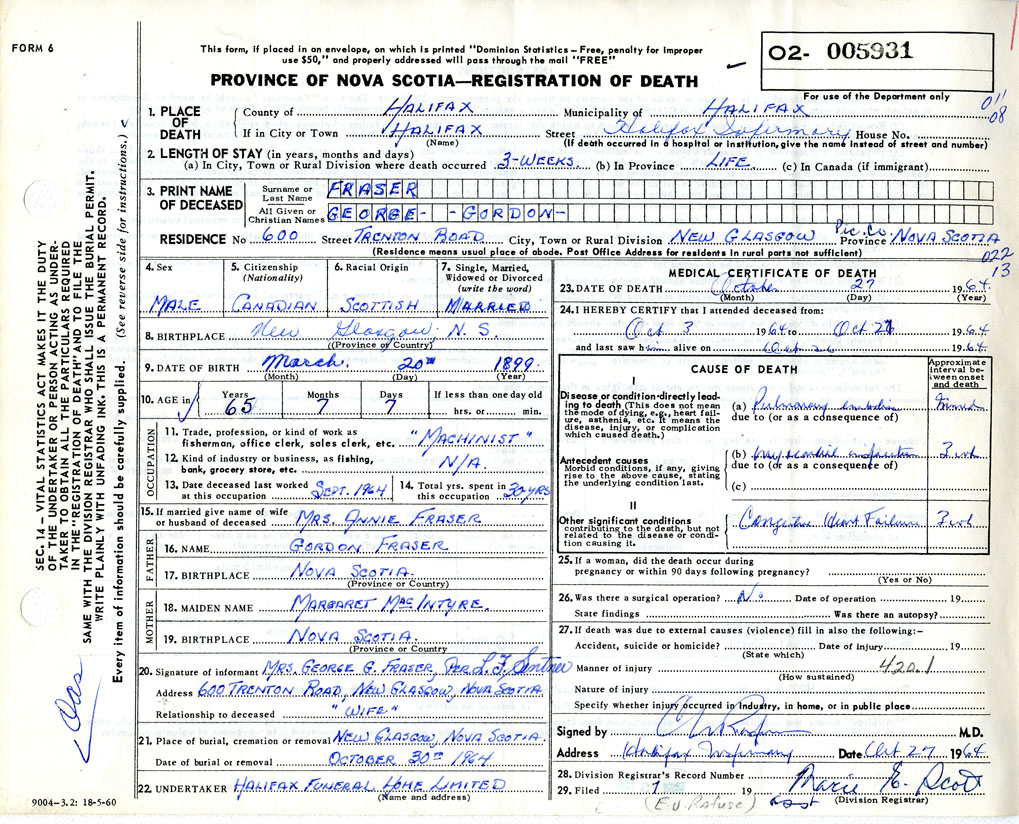 FORM 6
This form, if placed in an envelope, on which is printed "Dominion Statistics – Free, penalty for improper
use $50," and properly addressed will pass through the mail "FREE"
O2- 005931
PROVINCE OF NOVA SCOTIA—REGISTRATION OF DEATH
For use of the Department only
011
08
1. PLACE OF DEATH
County of HALIFAX Municipality of HALIFAX
If in City or Town HALIFAX Street Halifax Infirmary House No.
(Name) (If death occurred in a hospital or institution, give the name instead of street and number)
2. LENGTH OF STAY (in years, months and days)
(a) In City, Town or Rural Division where death occurred 3-WEEKS (b) In Province LIFE (c) In Canada (if immigrant)
3. PRINT NAME OF DECEASED
Surname or Last Name FRASER
All Given or Christian Names GEORGE- -GORDON-
RESIDENCE No 600 Street TRENTON ROAD City, Town or Rural Division NEW GLASGOW Pic. Co. Province NOVA SCOTIA
(Residence means usual place of abode. Post Office Address for residents in rural parts not sufficient)
022
13
4. Sex MALE
5. Citizenship (Nationality) CANADIAN
6. Racial Origin SCOTTISH
7. Single, Married, Widowed or Divorced (write the word) MARRIED
8. BIRTHPLACE New Glasgow N.S.
(Province or Country)
9. DATE OF BIRTH March 20TH 1899
(Month) (Day) (Year)
10. AGE in Years 65 Months 7 Days 7 If less than one day old
hrs. or min.
OCCUPATION
11. Trade, profession, or kind of work as
fisherman, office clerk, sales clerk, etc. "MACHINIST"
12. Kind of industry or business, as fishing,
bank, grocery store, etc. N/A.
13. Date deceased last worked at this occupation SEPT. 1964
14. Total yrs. spent in this occupation 30 YRS
15. If married give name of wife
or husband of deceased MRS. ANNIE FRASER
FATHER
16. NAME GORDON FRASER
17. BIRTHPLACE NOVA SCOTIA.
(Province or Country)
MOTHER
18. MAIDEN NAME MARGARET MACINTYRE.
19. BIRTHPLACE NOVA SCOTIA.
(Province or Country
20. Signature of informant MRS. GEORGE G. FRASER, Per L.F.
Address 600 TRENTON ROAD, NEW GLASGOW, NOVA SCOTIA
Relationship to deceased "WIFE"
21. Place of burial, cremation or removal NEW GLASGOW, NOVA SCOTIA.
Date of burial or removal OCTOBER 30TH 1964
22. UNDERTAKER HALIFAX FUNERAL HOME LIMITED
(Name and address)
MEDICAL CERTIFICATE OF DEATH
23. DATE OF DEATH October 27 1964
(Month) (Day) (Year)
24. I HEREBY CERTIFY that I attended deceased from:
Oct 3 1964 to Oct 27 1964
and last saw him alive on Oct 26 1964
CAUSE OF DEATH
Approximate interval between onset and death
I
Disease or condition directly leading to death (This does not mean the mode of dying, e.g., heart failure, asthenia, etc. It means the disease, injury, or complication which caused death.)
(a) Pulmonary embolism
due to (or as a consequence of)
Antecedent causes
Morbid conditions, if any, giving rise to the above cause, stating the underlying condition last.
(b) Myocardial infarction 3 wk
due to (or as a consequence of)
(c)
II
Other significant conditions
contributing to the death, but not related to the disease or condition causing it.
Congestive Heart Failure 3 wk
25. If a woman, did the death occur during
pregnancy or within 90 days following pregnancy?
(Yes or No)
26. Was there a surgical operation? No Date of operation 19
State findings Was there an autopsy?
27. If death was due to external causes (violence) fill in also the following:–
Accident, suicide or homicide? Date of injury 19
(State which)
Manner of injury 420.1
(How sustained)
Nature of injury
Specify whether injury occurred in industry, in home, or in public place
Signed by M.D.
Address Halifax Infirmary Date Oct 27 1964
28. Division Registrar's Record Number
29. Filed 19 Marie E. Scott
(Division Registrar)
SEC. 14 – VITAL STATISTICS ACT MAKES IT THE DUTY
OF THE UNDERTAKER OR PERSON ACTING AS UNDER-
TAKER TO OBTAIN ALL THE PARTICULARS REQUIRED
IN THE "REGISTRATION OF DEATH" AND TO FILE THE
SAME WITH THE DIVISION REGISTRAR WHO SHALL ISSUE THE BURIAL PERMIT.
WRITE PLAINLY WITH UNFADING INK. THIS IS A PERMANENT RECORD.
Every item of information should be carefully supplied. (See reverse side for instructions.)
9004-3.2: 18-5-60